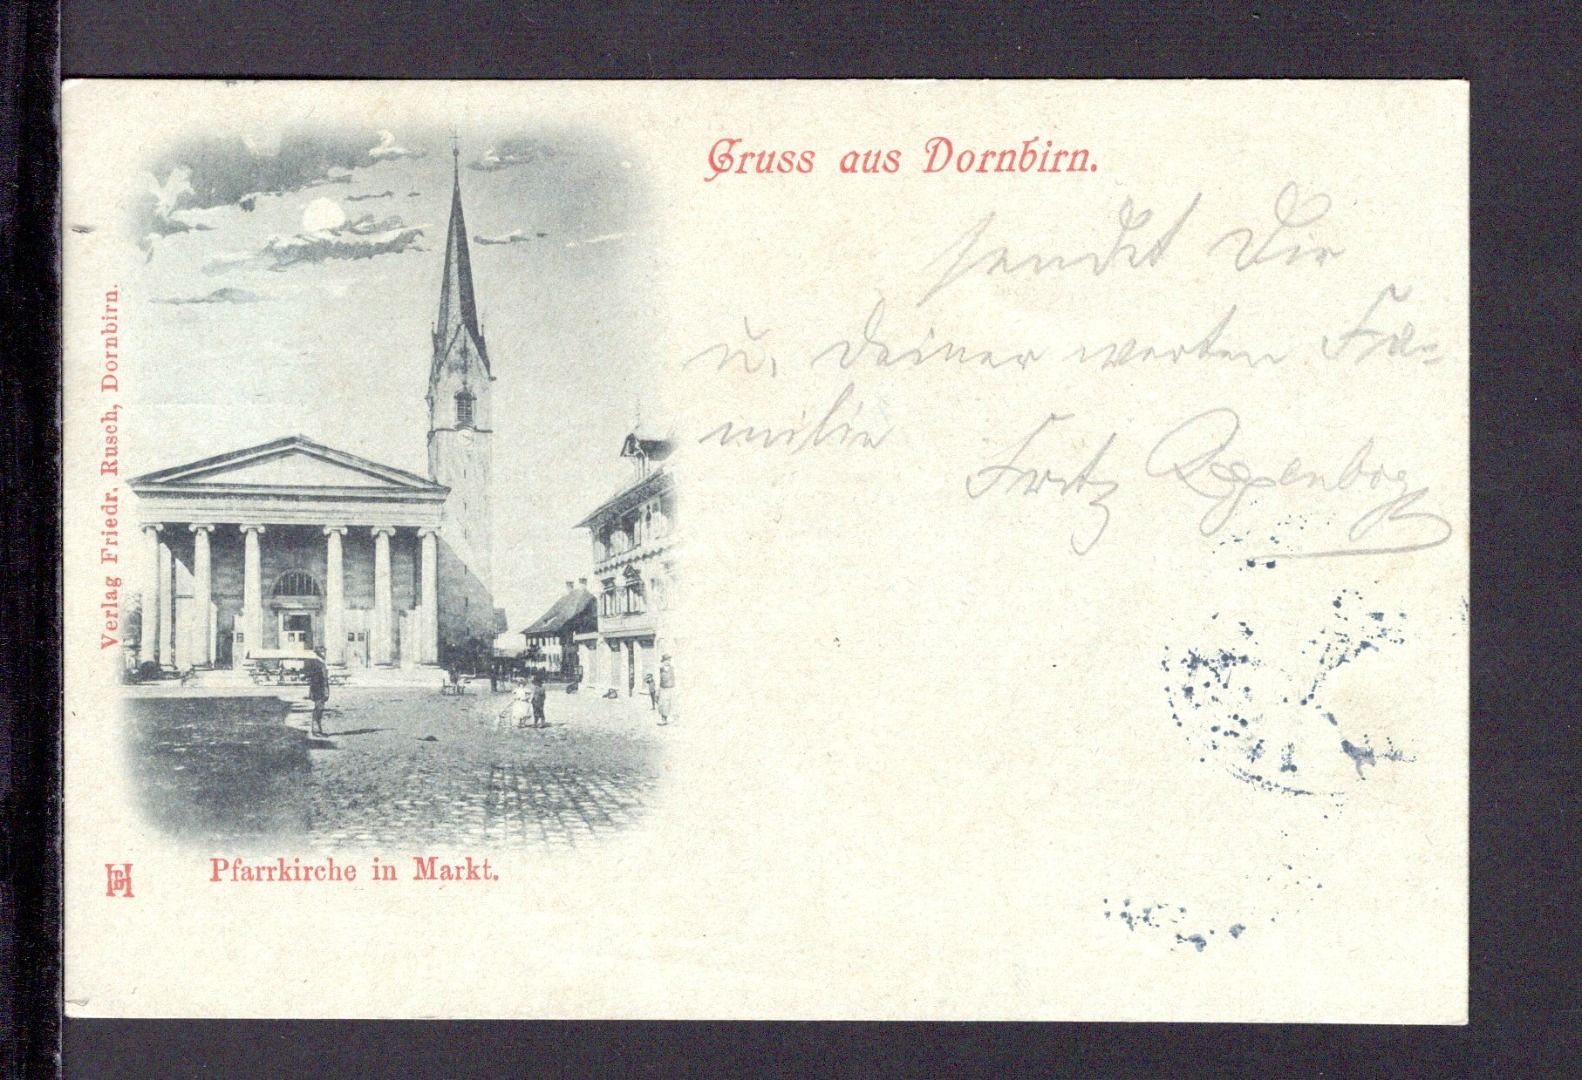 Gruss aus Dornbirn.
sendet Dir
u. deiner werten Fa-
milie Fritz
Verlag Friedr. Rusch, Dornbirn.
Pfarrkirche in Markt.